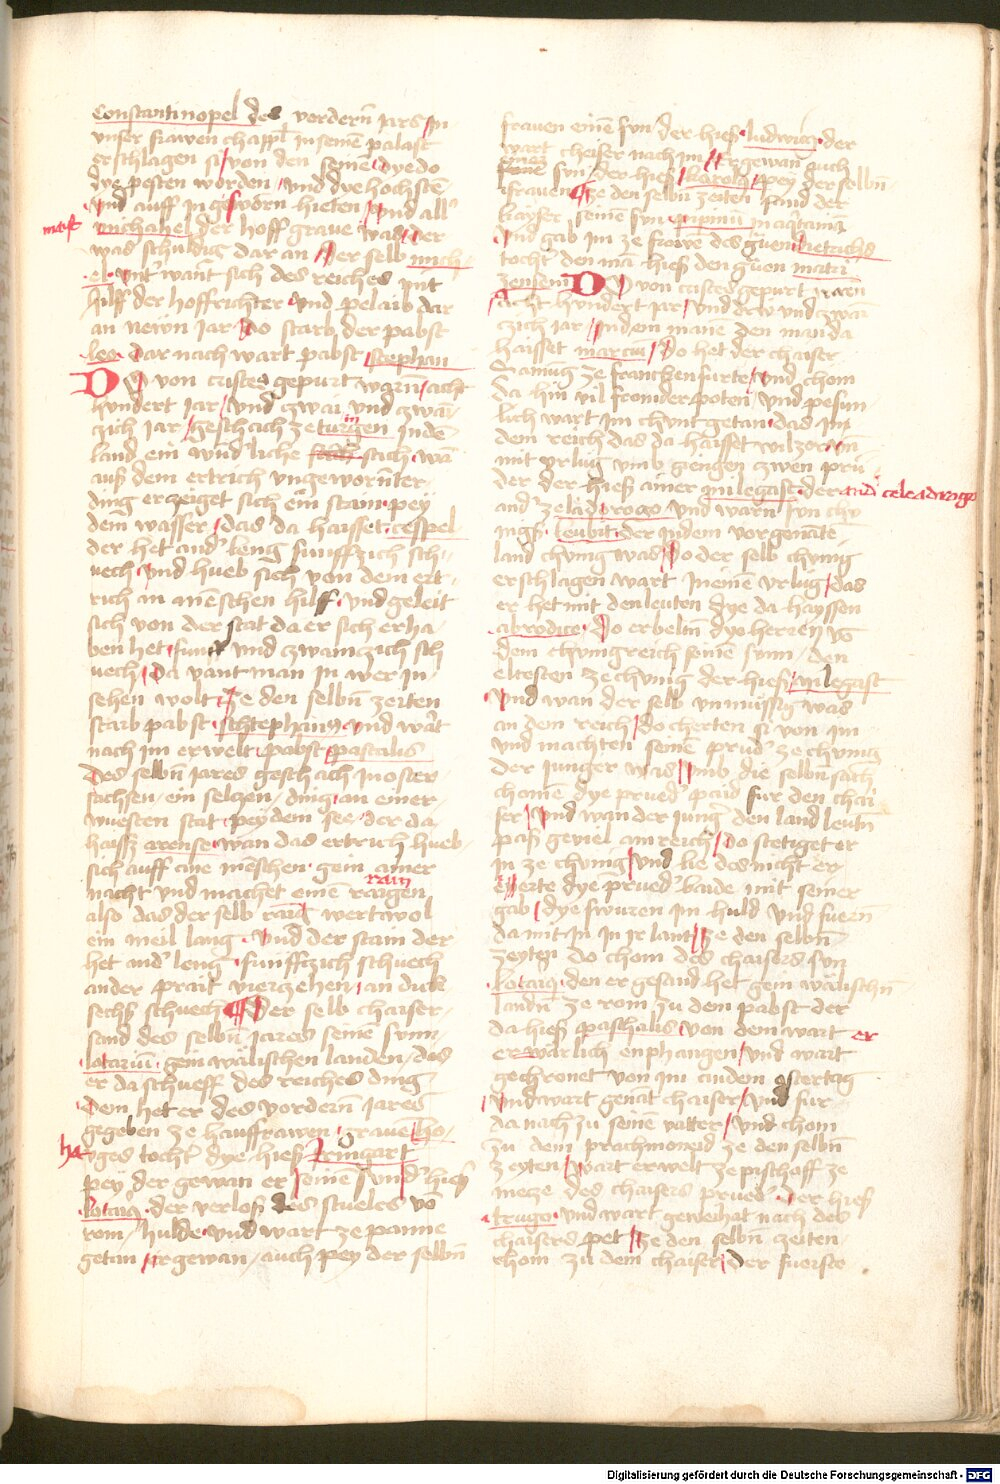 Constantinopel des vordern̄ jars Jn
vnser frawen chappl̄ Jn seinē palast
erschlagen si von den seinē dye do
dye pesten worden vnd dye hochstē
vnd auff in gesworn̄ hieten vnd all
maist michahel der hoff graue was der
was schuldig dar an Der selb mich
el vnt want sich des reiches mit
hilff der hoffrichter vnd pelaib dar
an newn jar Do starb der pabst
leo dar nach wart pabst stephan
DO von cristes gepurt warn̄ acht
hvndert jar vnd zwai vnd zwā
zich jar geschach ze turigen in dē
land ein wund'liche stich wā
auß dem ertrich vngeworn̄ter
ding erzeiget sich ein stain pey
dem wasser das da haisset cespel
der het and' leng funffzich sch
uech vnd hueb sich von dem ert
rich an mēschen hilff vnd geleit
sich von der stat da er sich erha
ben het funff vnd zwainczich sch
uech Da vant man in wer in
sehen wolt Ze den selbn̄ zeiten
starb pabst schtephanus vnd wart
nach im erwelt pabst pascalis
des selbn̄ jares geschach in oster
sachsen ein selczen ding an einer
wuesten stat pey dem see der da
haissz arense wan das ertrich hueb
sich auff ane mēschen gein ainer
nacht vnd machet einē rain
also das der selb wert wol
ein meil lang vnd der stain der
het and' leng funfftzich schuech
ander prait vierzehen an dick
sechs schuech Der selb chaiser
sand des selbn̄ jares seinē sunn
lotariū gein wälischen landen das
er da schueff des reiches ding
dem het er des vordern̄ jares
gegeben ze hauffrawen graue ho
ha uges tocht' dye hieß Irmgart
pey der gewan er sūne hieß
lotari der verlos des stueles vō
rom hulde vnd wart ze panne
getan Er gewan auch pey der selbn̄
frauen einē sun der hieß ludwig der
wart cheiser nach im Er gewan auch
einen sun der hieß karolū pey der selbn̄
frauen Ze den selbn̄ zeiten sand der
kayser seinē sun pipinū in aq̄taniā
vnd gab im ze frowe des grauen
tocht' den mā hieß den grauen matri
zensem DO von cristes gepurt waren
Acht hundert jar vnd drew vnd zwan
czich jar Jn dem mane den man da
haisset marciū Do het der chaiser
ze franckenfurte vnd chom
da hin vil fromder poten vnd pesun
lich wart im chunt getan das in
dem reich das da haisset wilzor
mit vrlug vmb giengen zwen prü
der der hieß ainer milegast der and' celeadrago
and' vnd warn̄ sun chu
nigs leubit der in dem vorgenātē
land chunig was Do der selb chunig
erschlagen wart in einē vrlug das
er het mit den leuten dye da hayssen
abrodite Do erbeltn̄ dye herren vō
dem chunigreich seinē sunn den
eltesten ze chunig der hieß milegast
vnd wan der selb vnmüssig was
an dem reich do cherten si von im
vnd machten seinē prud' ze chunig
der junger was vmb die selbn̄ sach
chamē dye prued' paid fur den chai
ser vnd wan der jung den land leutn̄
paß geviel an reich Do stetiget er
in ze chunig vnd lie des nicht er
erte dye prued' baide mit seiner
gab dye swuren im huld vnd fuern̄
da mit in in ir lant Ze den selbn̄
zeyten do chom des chaisers sun
lotari den er gesand het gein wälischn̄
landn̄ ze rom zu dem pabst der
da hieß paschalis von dem wart er
erwarlich enphangen vnd wart
gechronet von im an dem ostertag
vnd wart genāt chaiser vnd fur
da nach zu seinē vatter vnd chom
zu dem prachmoneid ze den selbn̄
zeyten Wart erwelt ze pischaff ze
mecze des chaisers prued' der hieß
trugo vnd wart geweihat nach des
chaisers pet Ze den selbn̄ zeiten
chom zu dem chaiser der fuerste
Digitalisierung gefördert durch die Deutsche Forschungsgemeinschaft - DFG